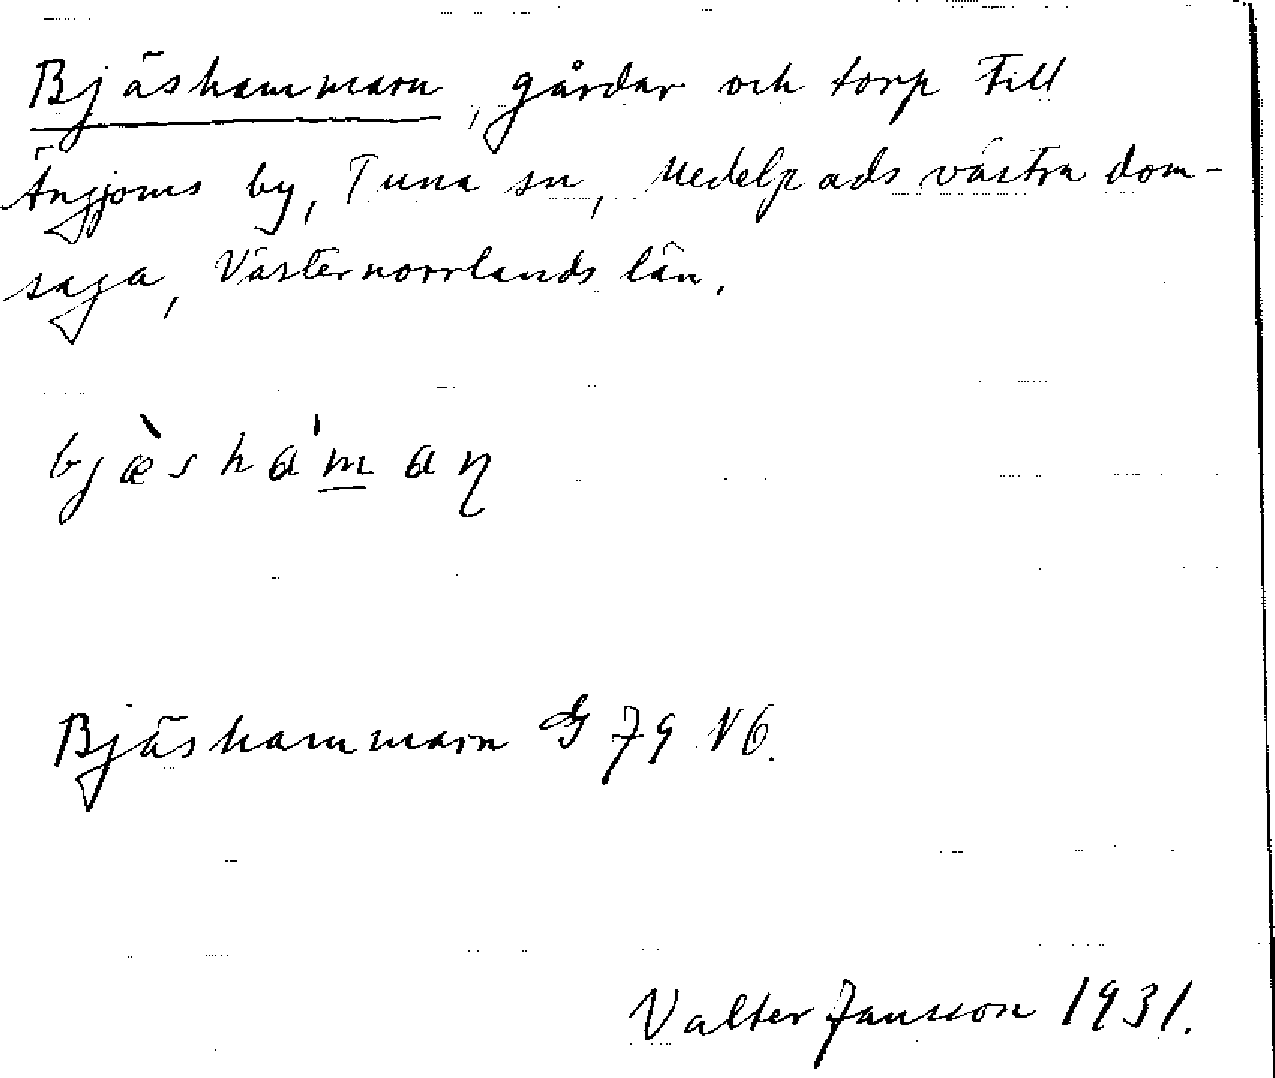 Bjäshammarn, gårdar och torp till
Ängjoms by, Tuna sn, Medelpads västra dom-
saga, Västernorrlands län.
bjæ̀shámaɳ
Bjäshammarn G 79 V6.
Valter Jansson 1931.